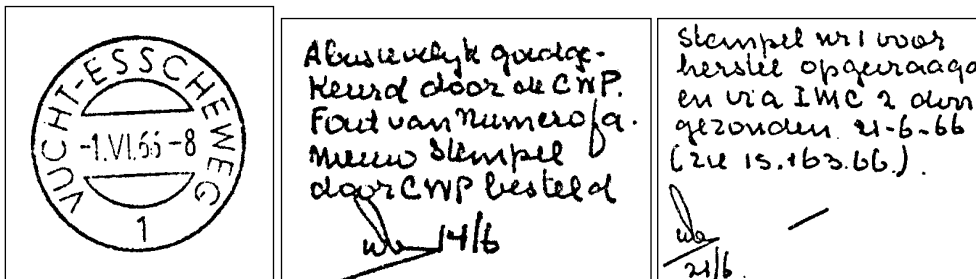 VUCHT-ESSCHEWEG
-1.VI.66-8
1
Abusievelijk goedge-
keurd door de CWP.
Fout van Numerofa.
Nieuw stempel
door CWP besteld
14/6
Stempel nr 1 voor
herstel opgevraagd
en via IMC 2 door
gezonden 21-6-66
(zie 15.163.66.).
21/6.